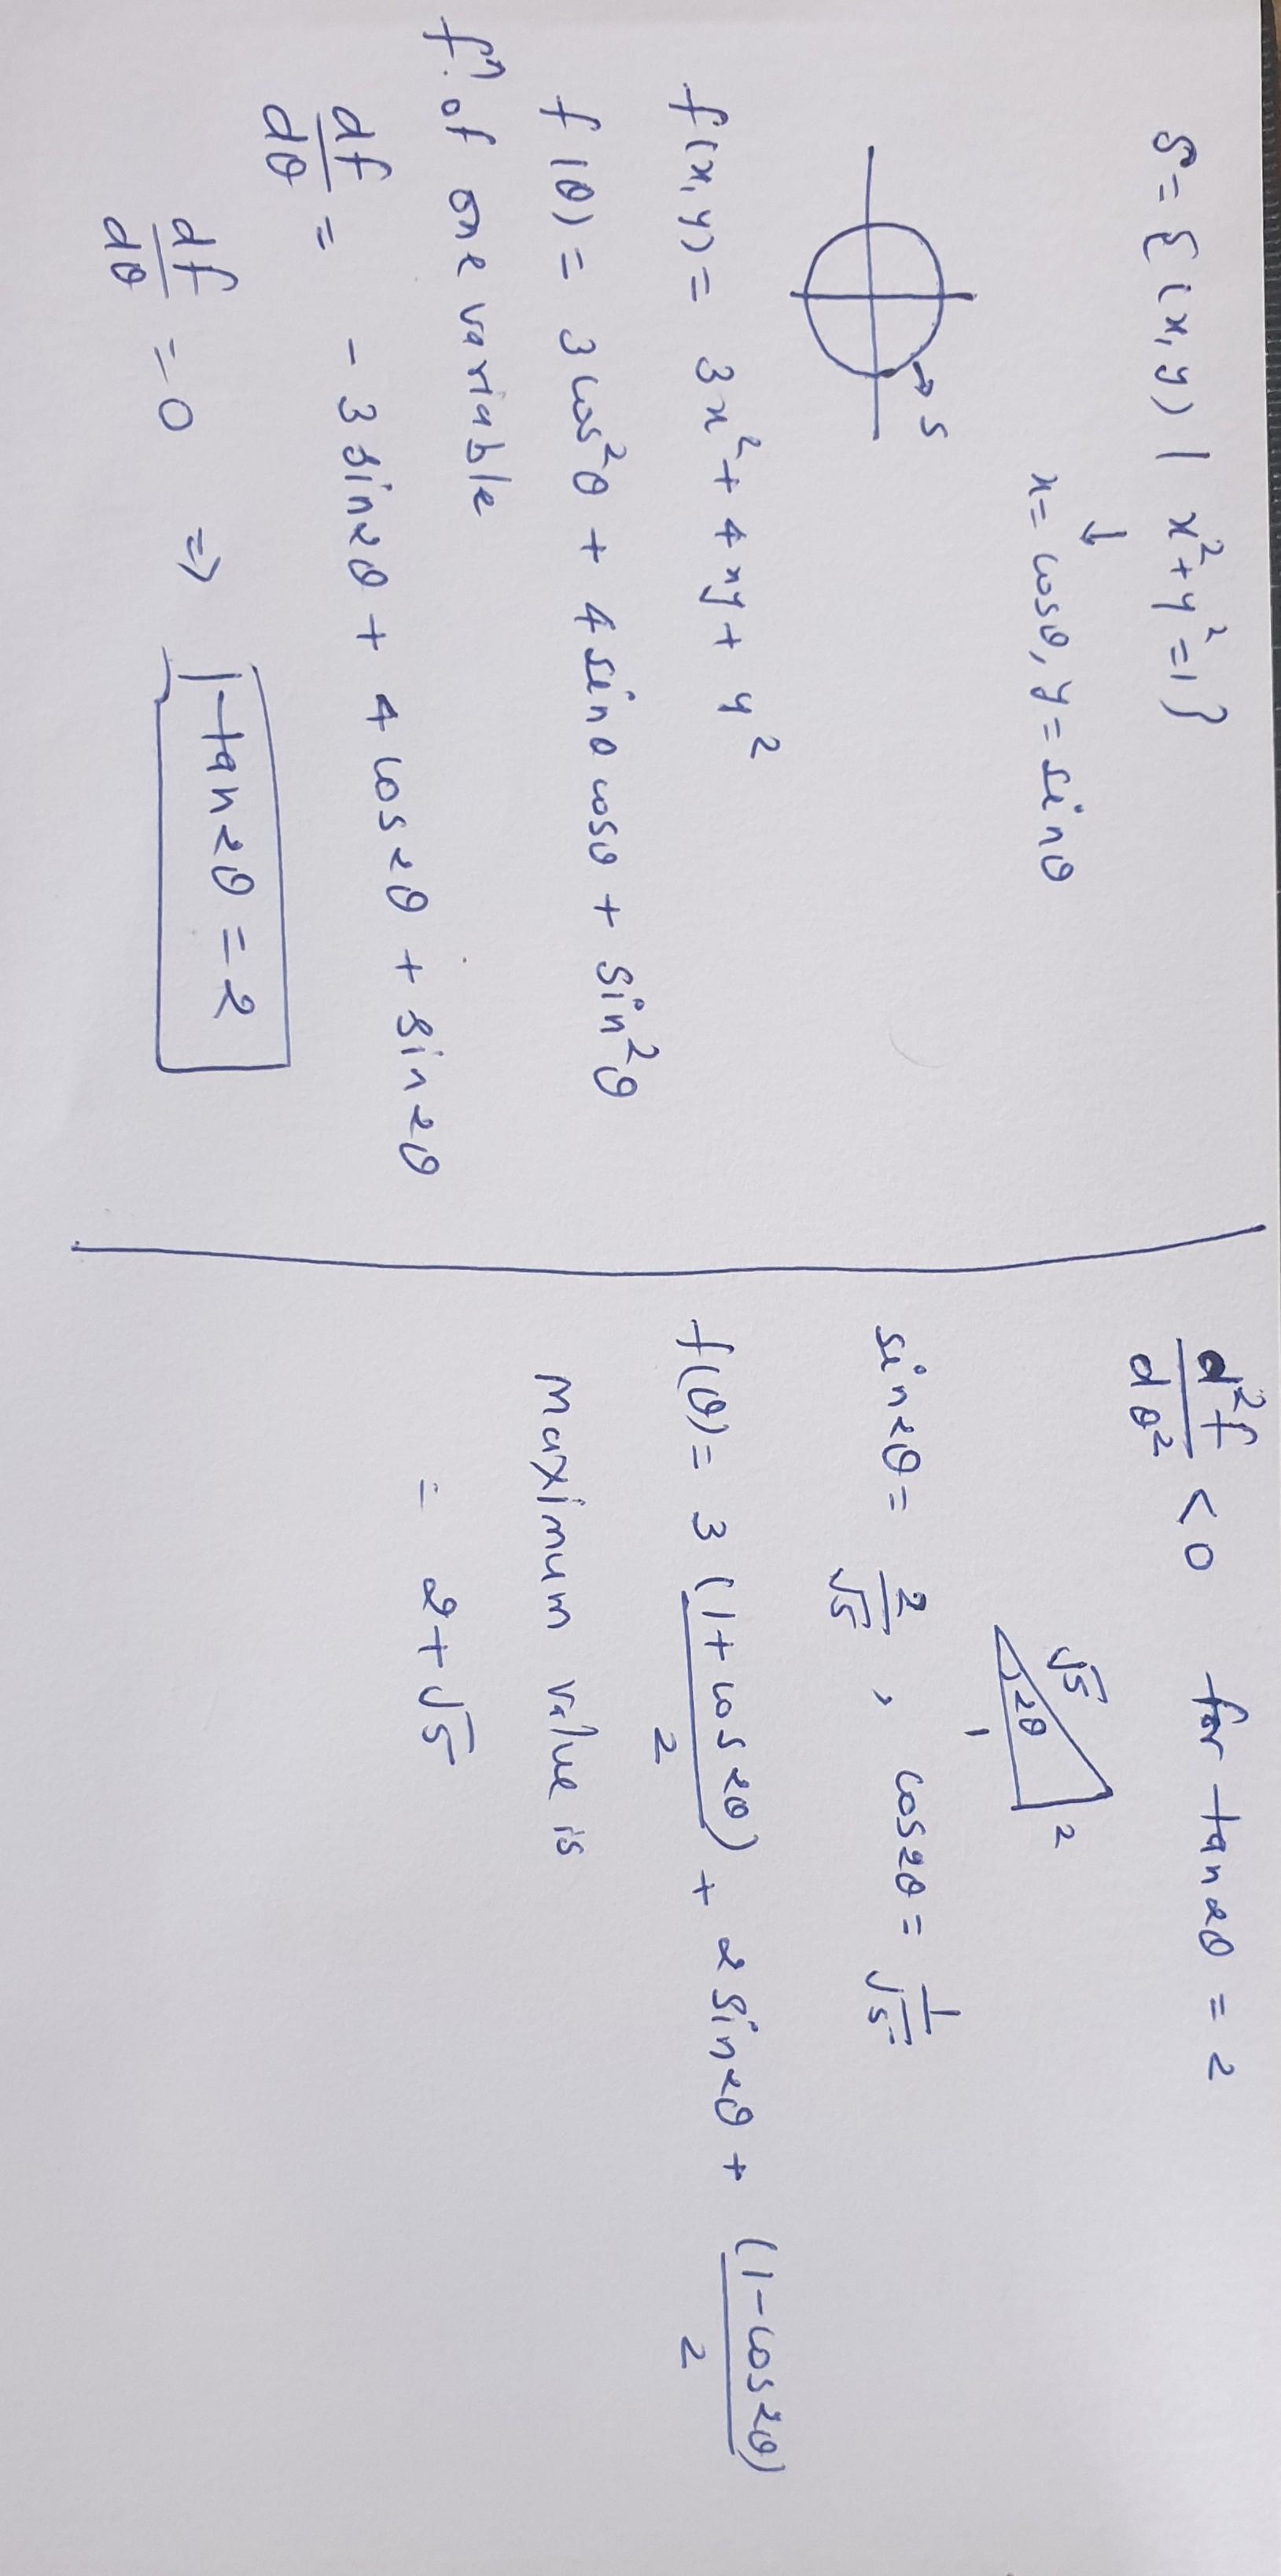 S = { (x, y) | x² + y² = 1 }
↓
x = cosθ, y = sinθ
→ S
f(x, y) = 3x² + 4xy + y²
f(θ) = 3 cos²θ + 4 sinθ cosθ + sin²θ
fⁿ. of one variable
df/dθ = - 3 sin2θ + 4 cos2θ + sin2θ
df/dθ = 0 ⇒ tan2θ = 2
d²f/dθ² < 0 for tan2θ = 2
√5 2θ 1 2
sin2θ = 2/√5 , cos2θ = 1/√5
f(θ) = 3 (1 + cos2θ)/2 + 2 sin2θ + (1 - cos2θ)/2
Maximum value is
= 2 + √5